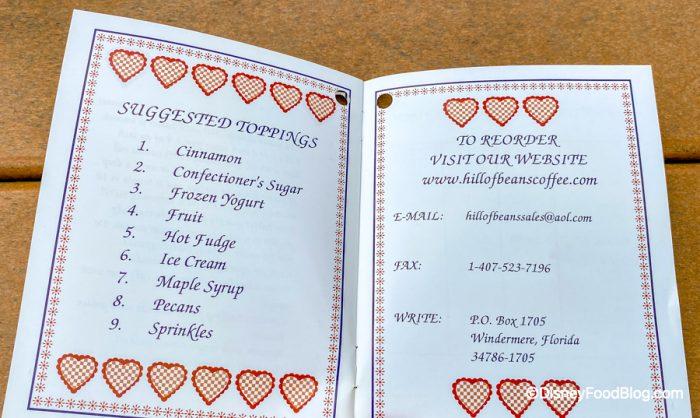 SUGGESTED TOPPINGS
1. Cinnamon
2. Confectioner's Sugar
3. Frozen Yogurt
4. Fruit
5. Hot Fudge
6. Ice Cream
7. Maple Syrup
8. Pecans
9. Sprinkles
TO REORDER
VISIT OUR WEBSITE
www.hillofbeanscoffee.com
E-MAIL: hillofbeanssales@aol.com
FAX: 1-407-523-7196
WRITE: P.O. Box 1705
Windermere, Florida
34786-1705
©DisneyFoodBlog.com